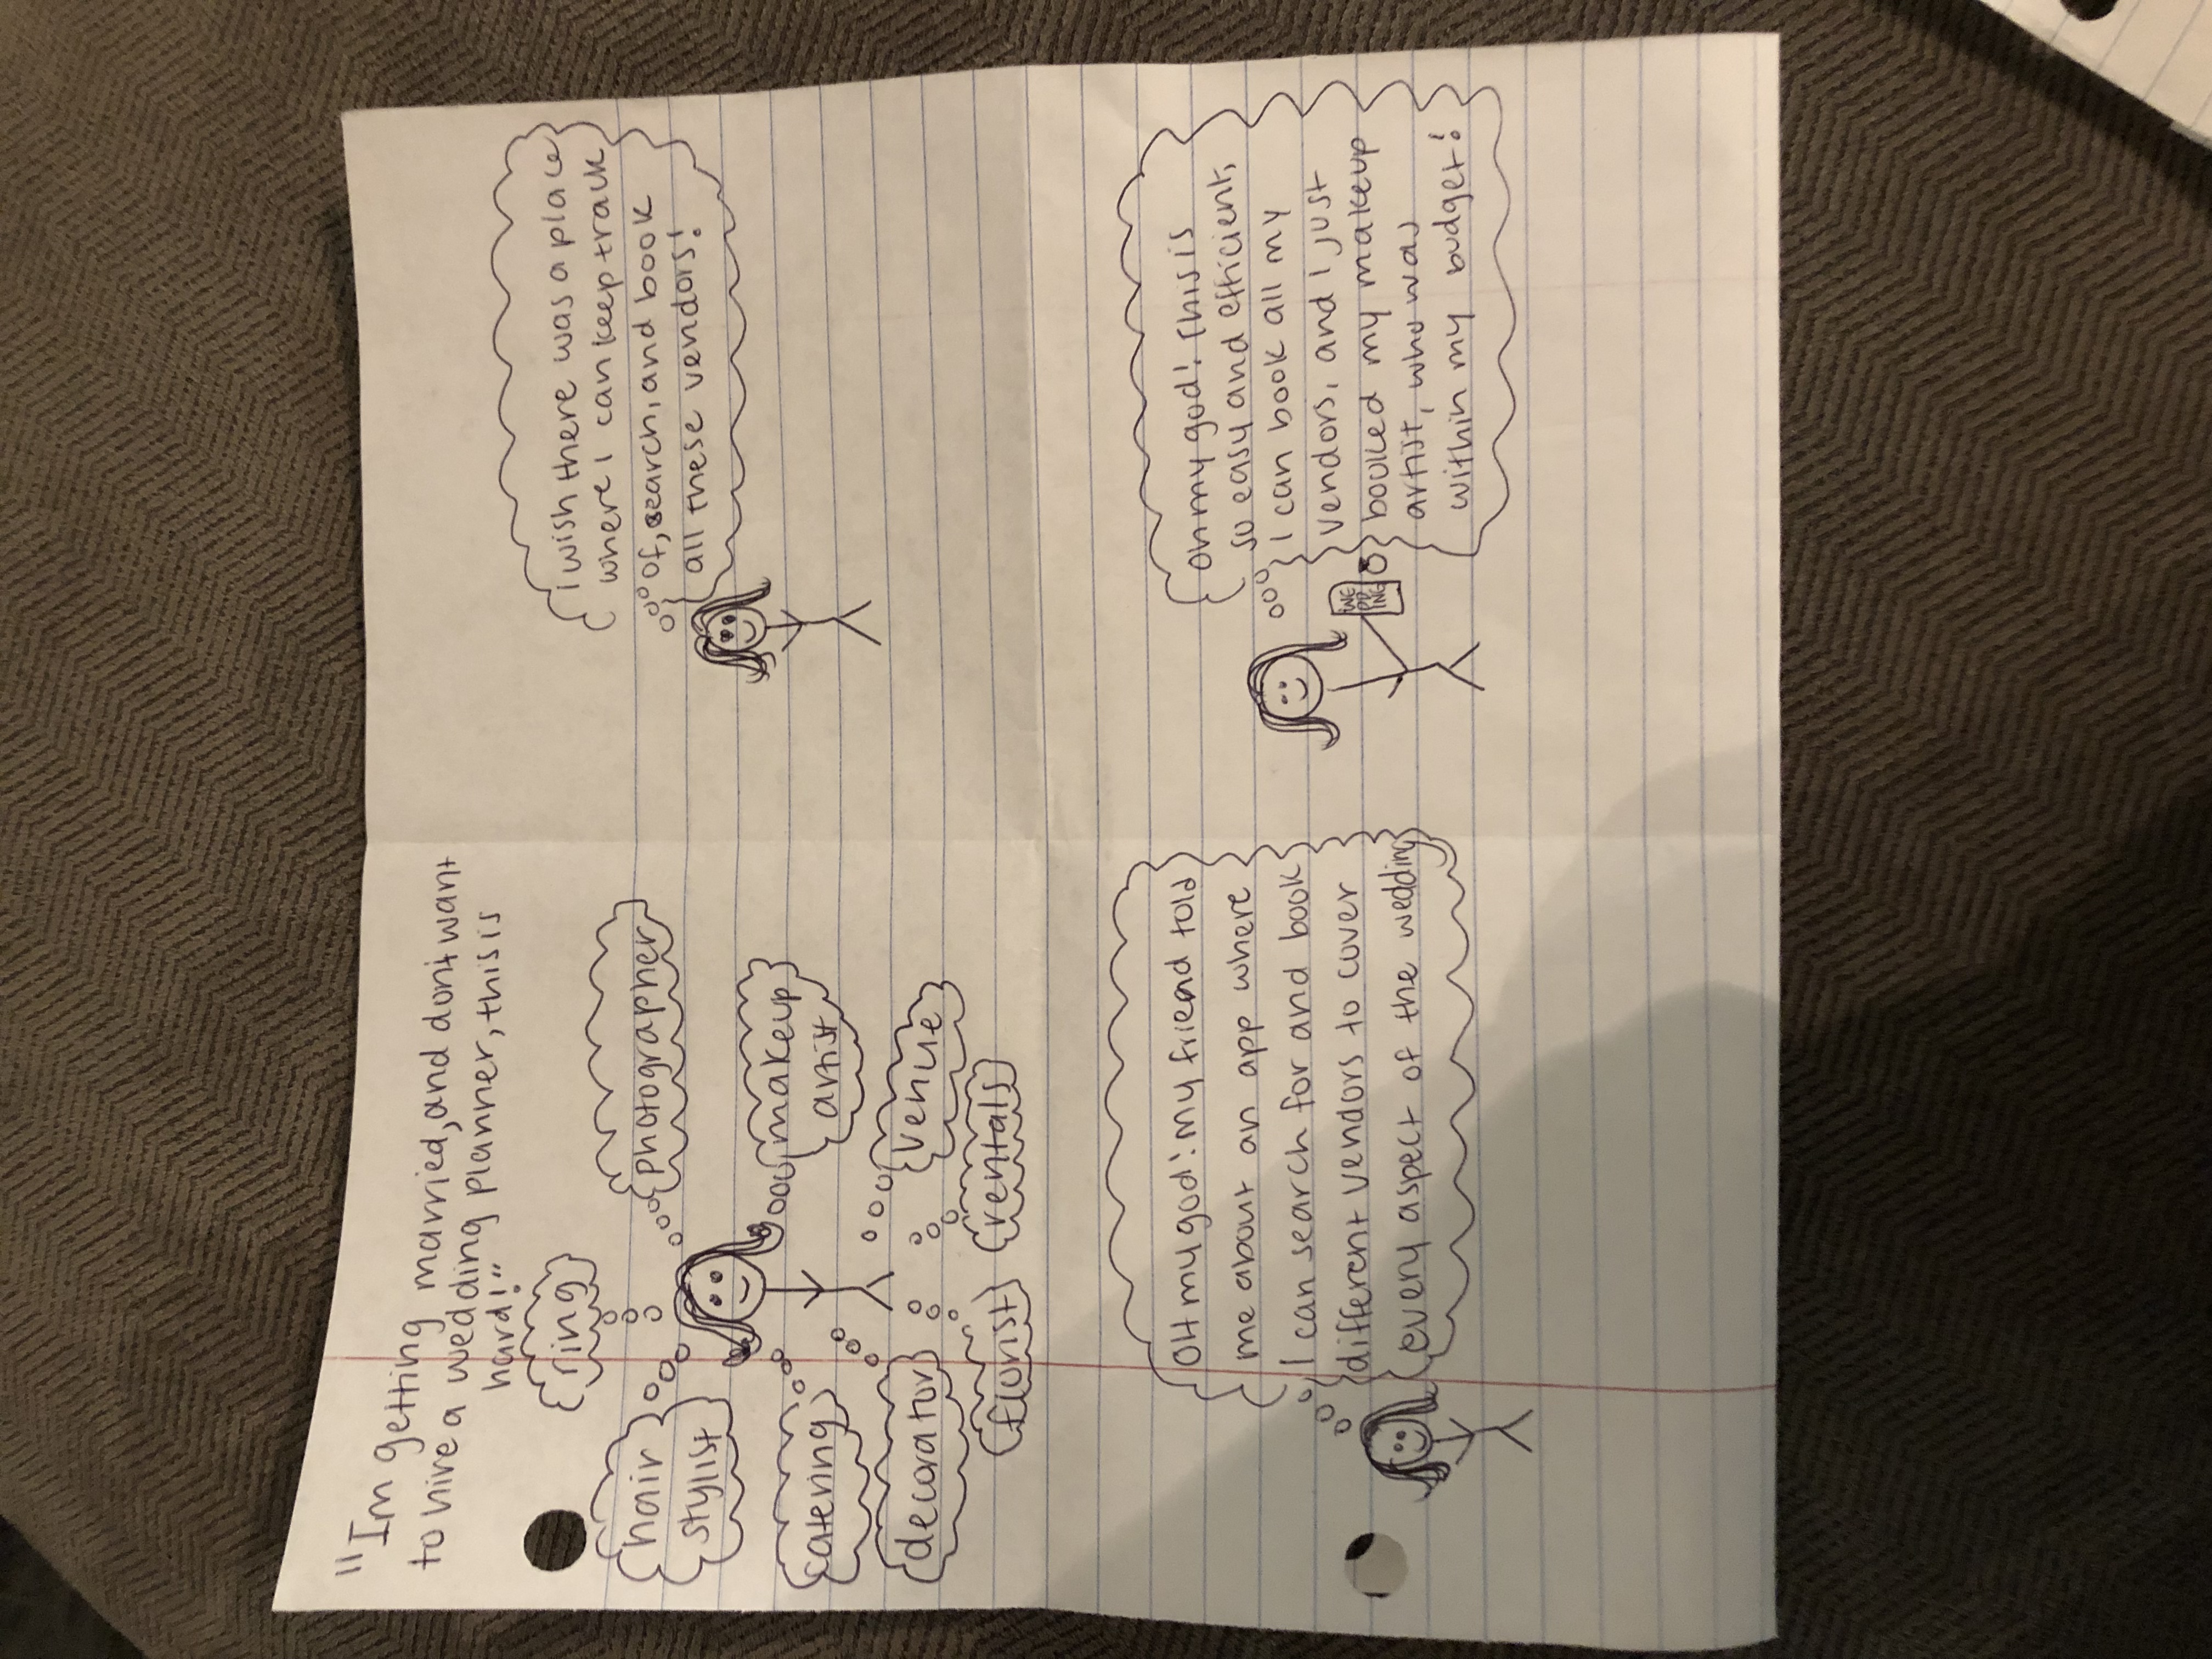 "Im getting married, and dont want
to hire a wedding planner, this is
hard!"
ring
hair
stylist
photographer
catering
makeup
artist
decorator
venue
florist
rentals
i wish there was a place
where i can keep track
of, search, and book
all these vendors!
OH my god! my friend told
me about an app where
I can search for and book
different vendors to cover
every aspect of the wedding
Oh my god! This is
so easy and efficient,
I can book all my
vendors, and I just
booked my makeup
artist, who was
within my budget!
WE
DD
ING